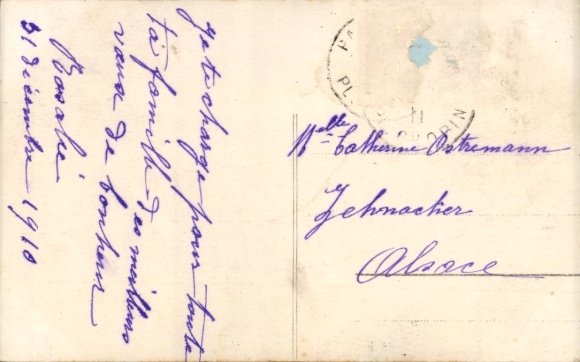 Je te charge pour toute
ta famille des meilleurs
vœux de bonheur
Rosalie
31 décembre 1910
PA
PL. CHOPIN
11
Melle Catherine Ostremann
Zehnacker
Alsace